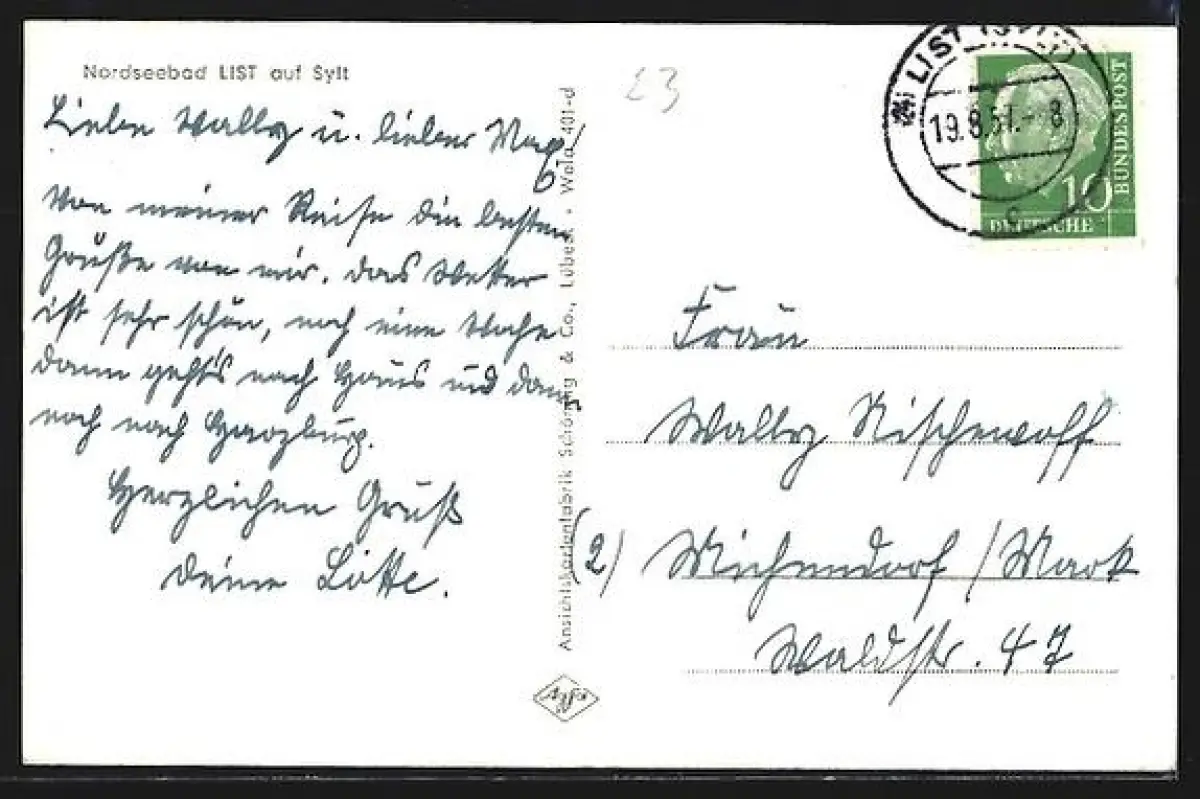 Nordseebad LIST auf Sylt
Liebe Wally u. lieber Max!
Von meiner Reise die besten
Grüße von mir. Das Wetter
ist sehr schön, noch eine Woche
dann geht's nach Haus und dann
noch nach Harzburg.
Herzlichen Gruß
Deine Lotte.
Ansichtskartenfabrik Schöning & Co., Lübeck · Wela 401-d
Agfa
23
LIST (SYLT)
19.8.57.-8
c
10
BUNDESPOST
DEUTSCHE
Frau
Wally Nischewoff
(2) Michendorf / Mark
Waldstr. 47